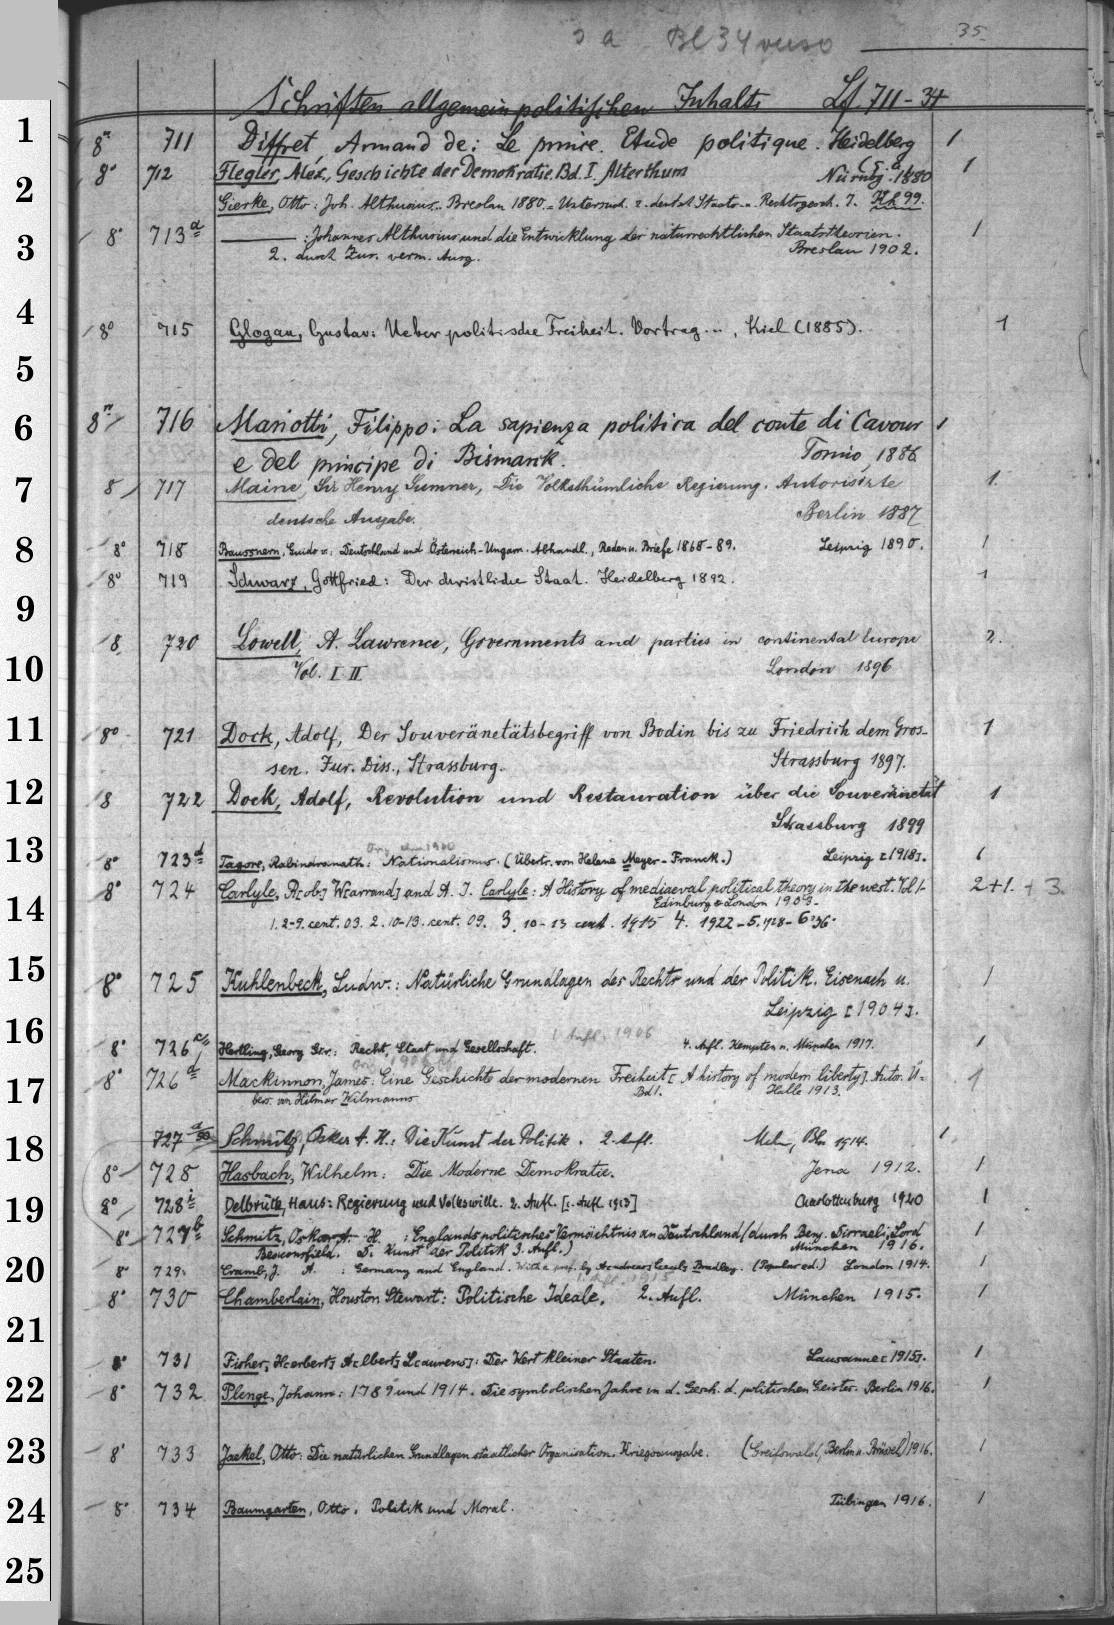 s a Bl 34 verso
35
Schriften allgemein politischen Inhalts Lf. 711-34
1
8° 711 Diffret, Armand de: Le prince. Etude politique. Heidelberg 1
(s. a.)
2
8° 712 Flegler, Alex., Geschichte der Demokratie. Bd. I. Alterthum Nürnbg. 1880 1
Gierke, Otto: Joh. Althusius. Breslau 1880. = Untersuch. z. deutsch. Staats- u. Rechtsgesch. 7. Kh 99.
3
8° 713 a ——— : Johannes Althusius und die Entwicklung der naturrechtlichen Staatstheorien. 1
2. durch Zus. verm. Ausg. Breslau 1902.
4
8° 715 Glogau, Gustav: Ueber politische Freiheit. Vortrag ... , Kiel (1885). 1
5
6
8° 716 Mariotti, Filippo: La sapienza politica del conte di Cavour 1
e del principe di Bismarck. Torino, 1886
7
8 717 Maine, Sir Henry Sumner, Die Volksthümliche Regierung. Autorisirte 1.
deutsche Ausgabe. Berlin 1887
8
8° 718 Baussnern, Guido v.: Deutschland und Österreich-Ungarn. Abhandl., Reden u. Briefe 1868-89. Leipzig 1890. 1
8° 719 Schwarz, Gottfried: Der christliche Staat. Heidelberg 1892. 1
9
8. 720 Lowell, A. Lawrence, Governments and parties in continental Europe 2.
10
Vol. I II London 1896
11
8° 721 Dock, Adolf, Der Souveränetätsbegriff von Bodin bis zu Friedrich dem Gros- 1
sen. Jur. Diss., Strassburg. Strassburg 1897.
12
8 722 Dock, Adolf, Revolution und Restauration über die Souveränetät 1
Strassburg 1899
13
8° 723 d Tagore, Rabindranath: Nationalismus. (Übertr. von Helene Meyer-Franck.) Leipzig [1918]. 1
8° 724 Carlyle, R[ob.] W[arrand] and A. J. Carlyle: A History of mediaeval political theory in the west. Vol 1- 2+1. + 3.
Edinburg & London 1903-
14
1. 2-9. cent. 03. 2. 10-13. cent. 09. 3. 10-13 cent. 1915 4. 1922 - 5. 1928 - 6. 36.
15
8° 725 Kuhlenbeck, Ludw.: Natürliche Grundlagen des Rechts und der Politik. Eisenach u. 1
Leipzig [1904].
16
1. Aufl. 1906
8° 726 Hertling, Georg Gr.: Recht, Staat und Gesellschaft. 4. Aufl. Kempten u. München 1917. 1
17
8° 726 d Mackinnon, James: Eine Geschichte der modernen Freiheit [A history of modern liberty]. Autor. Ü- 1
bers. von Hilmar Wilmanns Bd 1. Halle 1913.
18
727 a Schmitz, Oskar A. H.: Die Kunst der Politik. 2. Aufl. Mchn, Bln 1914. 1
8° 728 Hasbach, Wilhelm: Die Moderne Demokratie. Jena 1912. 1
19
8° 728 i Delbrück, Hans: Regierung und Volkswille. 2. Aufl. [1. Aufl. 1913] Charlottenburg 1920 1
8° 727 b Schmitz, Oskar A. H. : Englands politisches Vermächtnis an Deutschland (durch Benj. Disraeli, Lord 1
Beaconsfield. D. Kunst der Politik 3. Aufl.) München 1916.
20
8° 729. Cramb, J. A. : Germany and England. With a pref. by Andrew Cecil Bradley. (Popular ed.) London 1914. 1
1. Aufl. 1915
8° 730 Chamberlain, Houston Stewart: Politische Ideale. 2. Aufl. München 1915. 1
21
8° 731 Fisher, H[erbert] A[lbert] L[aurens]: Der Wert kleiner Staaten. Lausanne [1915]. 1
22
8° 732 Plenge, Johann: 1789 und 1914. Die symbolischen Jahre in d. Gesch. d. politischen Geistes. Berlin 1916. 1
23
8° 733 Jaekel, Otto: Die natürlichen Grundlagen staatlicher Organisation. Kriegsausgabe. (Greifswald, Berlin u. Brüssel) 1916. 1
24
8° 734 Baumgarten, Otto. Politik und Moral. Tübingen 1916. 1
25